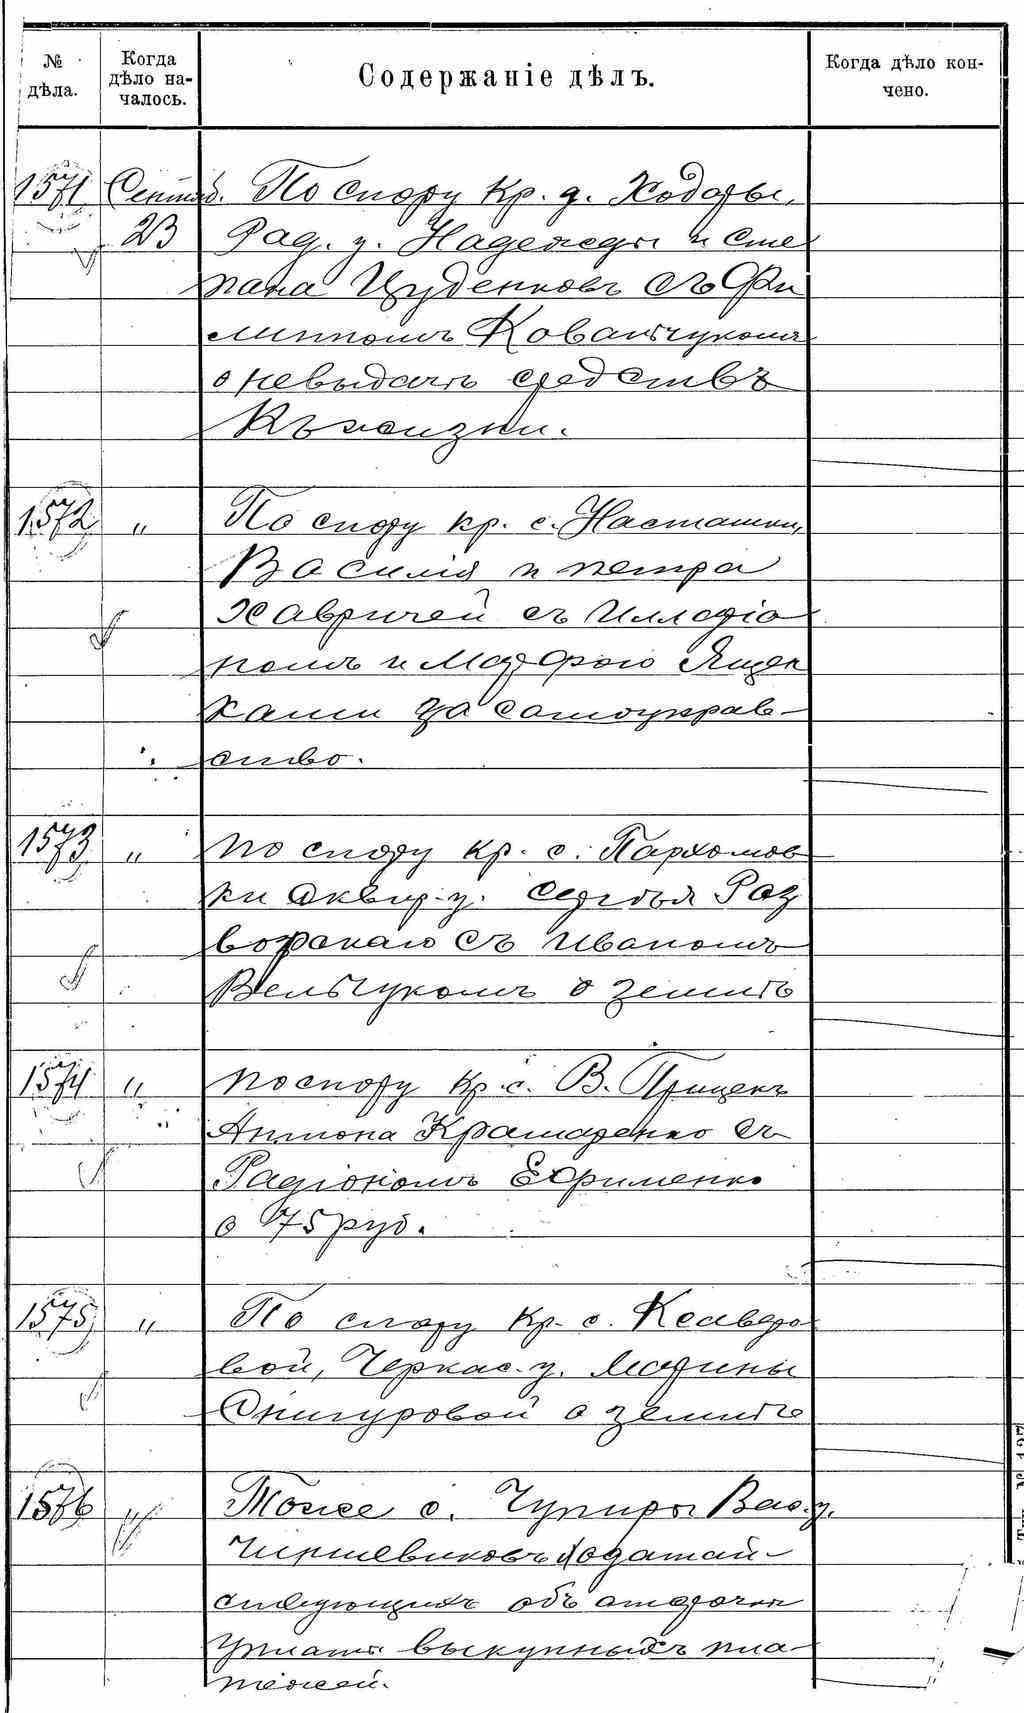 № дѣла. Когда дѣло на-чалось. Содержаніе дѣлъ. Когда дѣло кон-чено.
1571 Сентяб. По спору кр. д. Ходоры,
23 Рад. у. Надежды и Сте
пана Цуденковъ съ Фи
липпомъ Ковальчукомъ
о невыдачѣ средствъ
къ жизни.
1572 " По спору кр. с. Насташки,
Василія и Петра
Хавричей съ Илларіо
номъ и Марфою Ящен
ками за самоуправ-
ство.
1573 " По спору кр. с. Пархомов
ки Сквир. у. Сергѣя Раз
ворскаго съ Иваномъ
Вельчукомъ о землѣ
1574 " По спору кр. с. В. Прицекъ
Антона Крамаренко съ
Радіономъ Ефименко
о 75 руб.
1575 " По спору кр. с. Ксаверо
вой, Черкас. у. Марины
Снигуровой о землѣ
1576 " Тоже с. Чупиры Вас. у.
ходатай-
ствующихъ объ отсрочкѣ
уплаты выкупныхъ пла-
тежей.